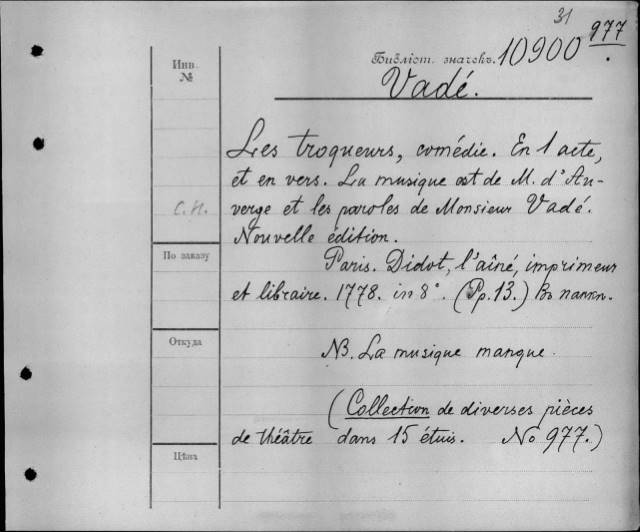 31
Библіот. значекъ. 10900 977
Инв.
№
Vadé.
Les troqueurs, comédie. En 1 acte,
et en vers. La musique est de M. d'Au-
verge et les paroles de Monsieur Vadé.
С.Н.
Nouvelle édition.
По заказу
Paris. Didot, l'aîné, imprimeur
et libraire. 1778. in 8°. (Pp. 13.) Во папкп.
Откуда
NB. La musique manque.
(Collection de diverses pièces
de théâtre dans 15 étuis. No 977.)
Цѣна